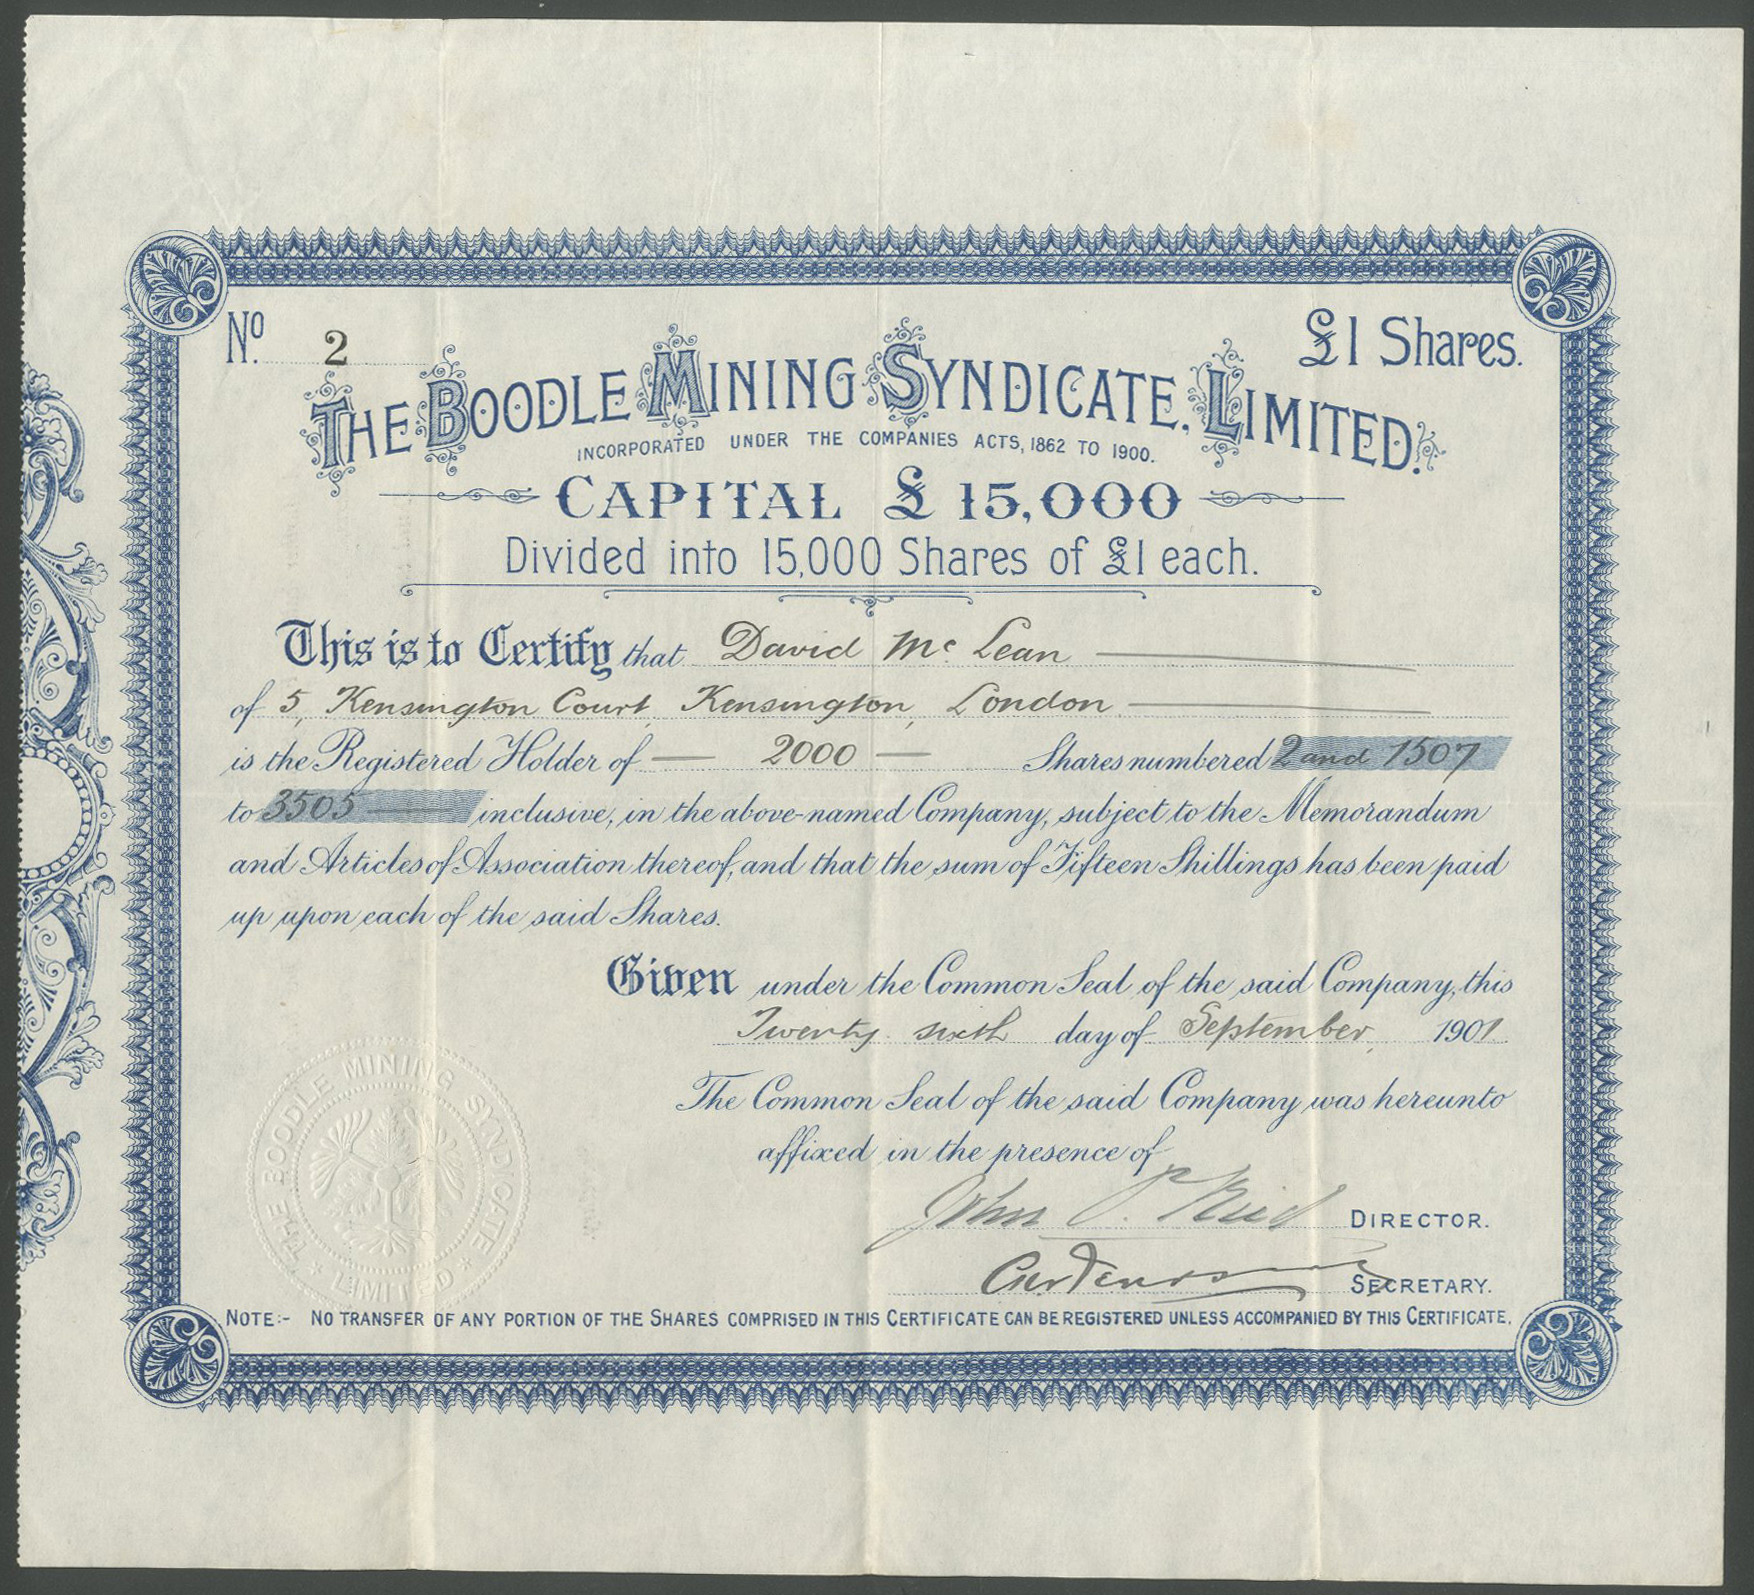 No. 2
£1 Shares.
THE BOODLE MINING SYNDICATE, LIMITED.
INCORPORATED UNDER THE COMPANIES ACTS, 1862 TO 1900.
CAPITAL £15,000
Divided into 15,000 Shares of £1 each.
This is to Certify that David McLean
of 5, Kensington Court, Kensington, London
is the Registered Holder of — 2000 — Shares numbered 2 and 1507
to 3505 inclusive, in the above-named Company, subject to the Memorandum
and Articles of Association thereof, and that the sum of Fifteen Shillings has been paid
up upon each of the said Shares.
Given under the Common Seal of the said Company, this
Twenty sixth day of September, 1901.
The Common Seal of the said Company was hereunto
affixed in the presence of
John P. Reid DIRECTOR.
SECRETARY.
THE BOODLE MINING SYNDICATE * LIMITED *
NOTE:- NO TRANSFER OF ANY PORTION OF THE SHARES COMPRISED IN THIS CERTIFICATE CAN BE REGISTERED UNLESS ACCOMPANIED BY THIS CERTIFICATE.